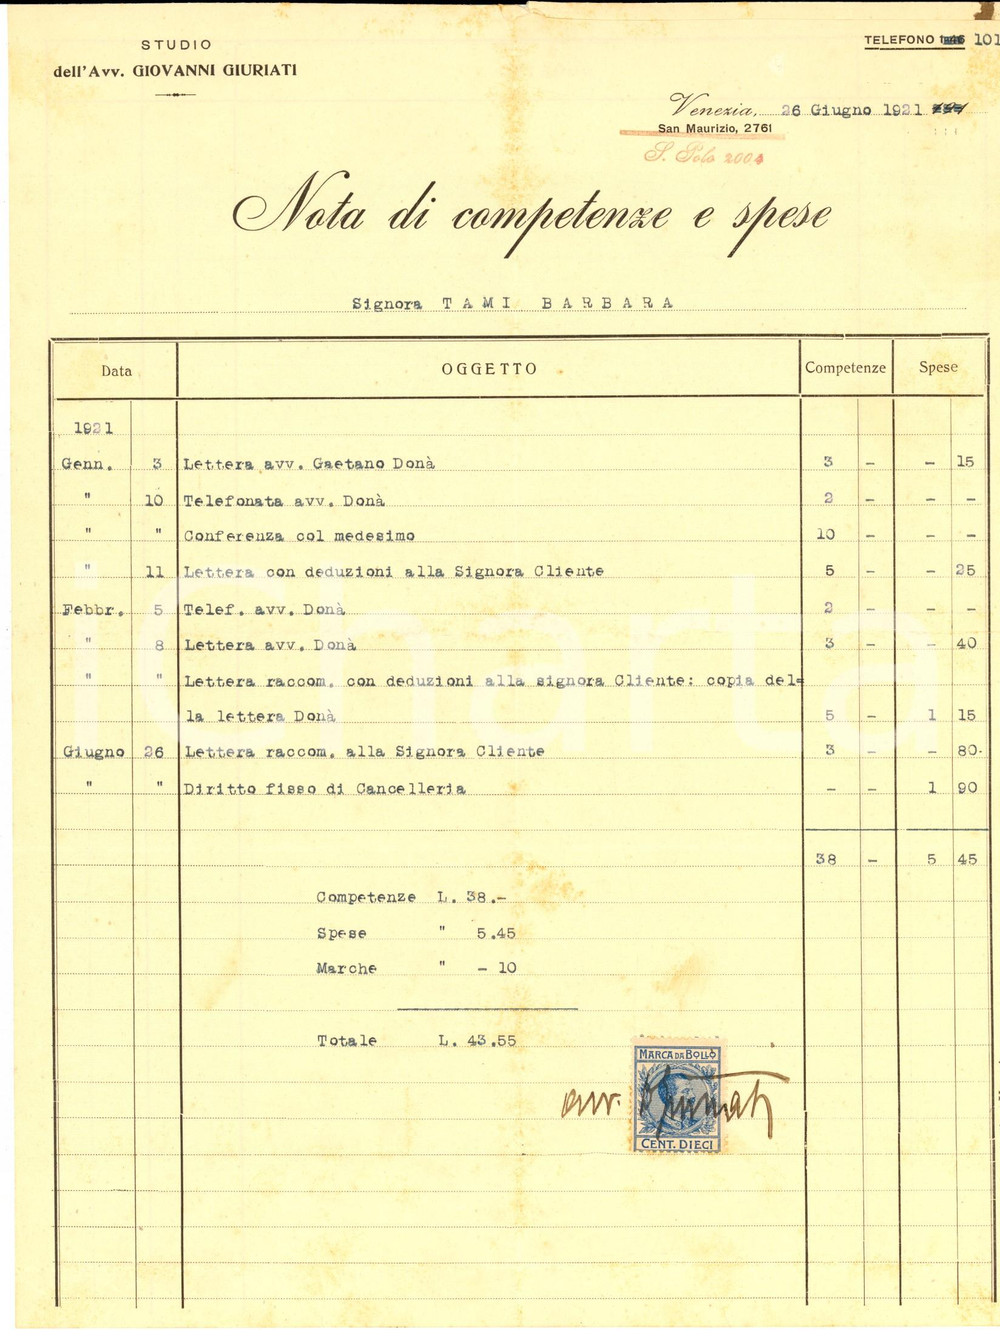 STUDIO
dell'Avv. GIOVANNI GIURIATI
TELEFONO 101
Venezia, 26 Giugno 1921
San Maurizio, 2761
S. Polo 2004
Nota di competenze e spese
Signora TAMI BARBARA
Data OGGETTO Competenze Spese
1921
Genn. 3 Lettera avv. Gaetano Donà 3 - - 15
" 10 Telefonata avv. Donà 2 - - -
" " Conferenza col medesimo 10 - - -
" 11 Lettera con deduzioni alla Signora Cliente 5 - - 25
Febbr. 5 Telef. avv. Donà 2 - - -
" 8 Lettera avv. Donà 3 - - 40
" " Lettera raccom. con deduzioni alla signora Cliente: copia del=
la lettera Donà 5 - 1 15
Giugno 26 Lettera raccom. alla Signora Cliente 3 - - 80.
" " Diritto fisso di Cancelleria - - 1 90
38 - 5 45
Competenze L. 38.-
Spese " 5.45
Marche " - 10
Totale L. 43.55
MARCA DA BOLLO
avv. Giuriati
CENT. DIECI
iCharta